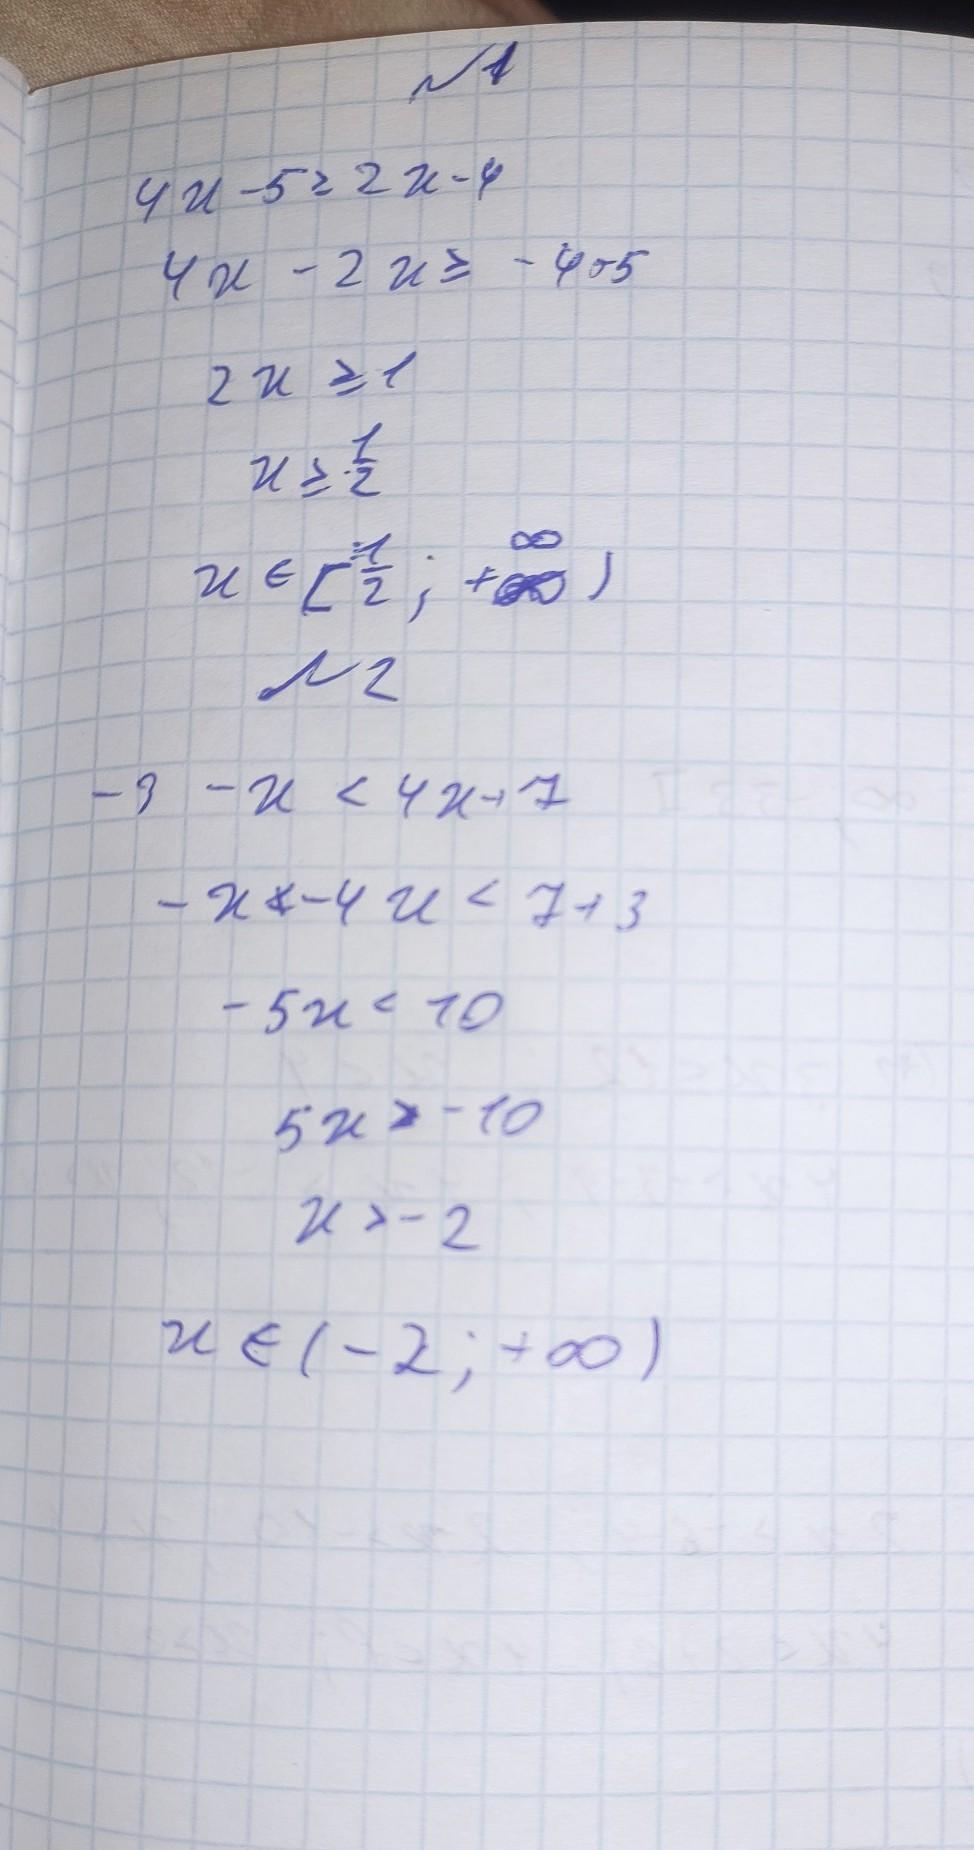 №1
4x - 5 ≥ 2x - 4
4x - 2x ≥ -4+5
2x ≥ 1
x ≥ 1/2
x ∈ [1/2; +∞)
№2
-3 -x < 4x+7
-x -4x < 7+3
-5x < 10
5x > -10
x > -2
x ∈ (-2; +∞)